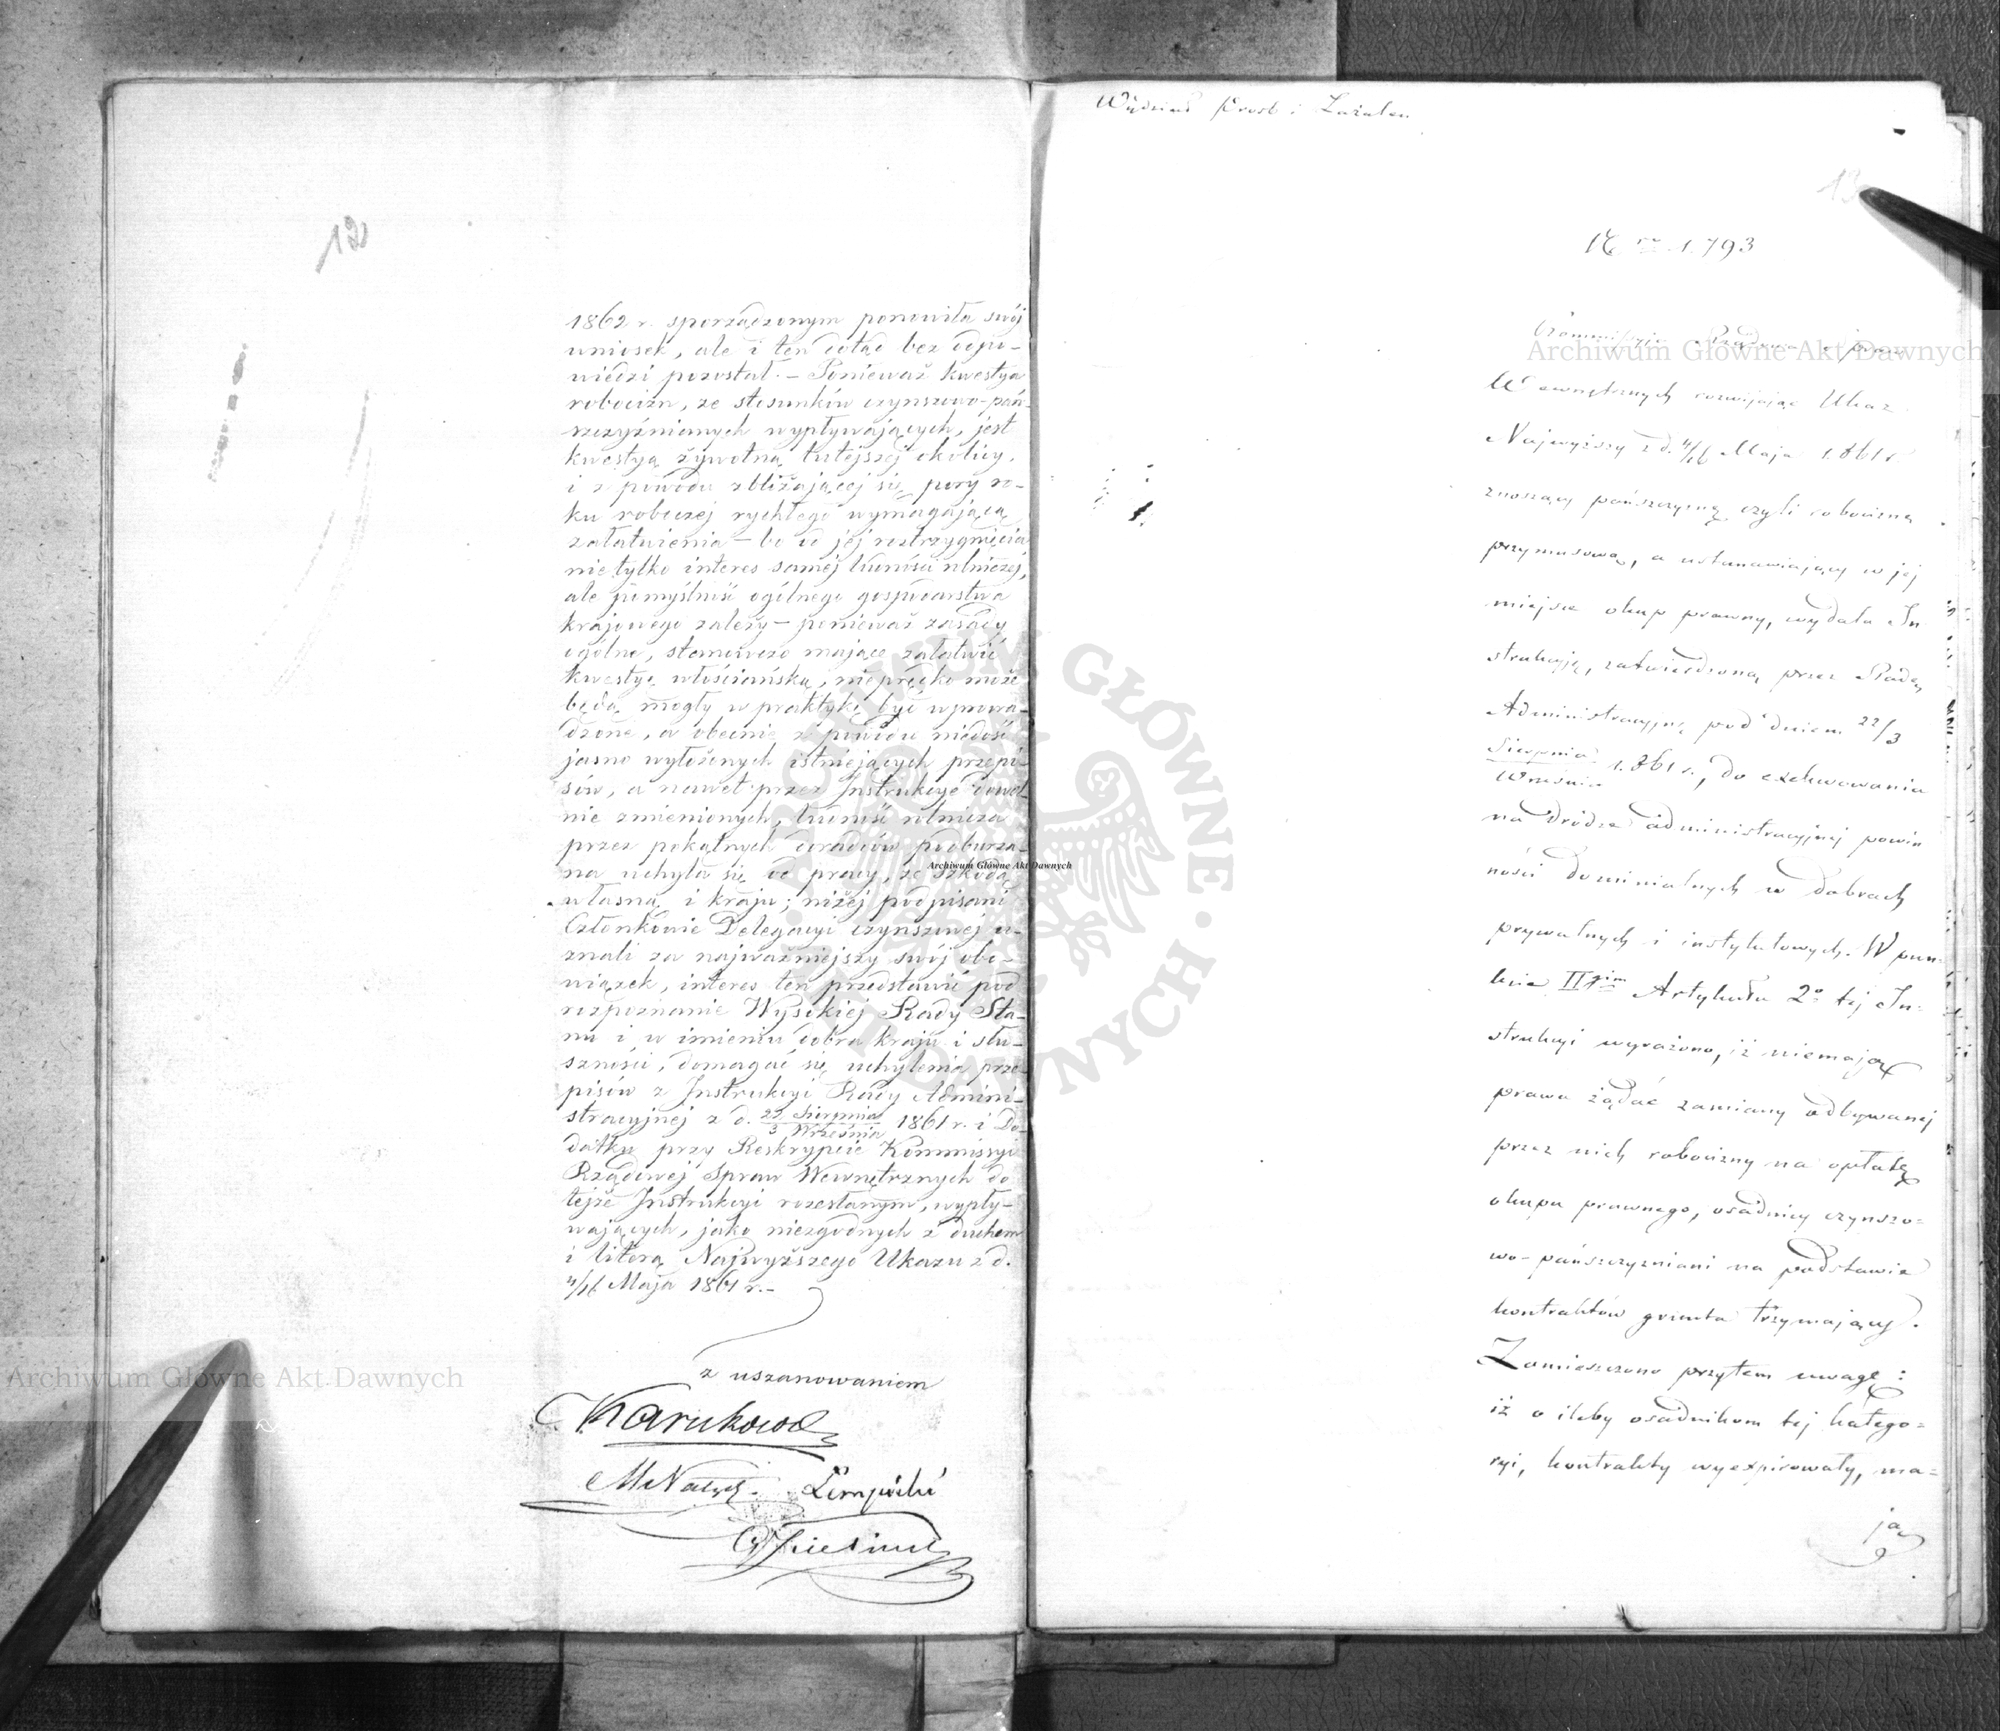 12
1862 r. sporządzonym ponowiła swój
wniosek, ale i ten dotąd bez odpo-
wiedzi pozostał. – Ponieważ kwestya
robocizn, ze stosunków czynszowo-pań-
szczyźnianych wypływających, jest
kwestyą żywotną tutejszej okolicy,
i z powodu zbliżającej się pory ro-
ku roboczej rychłego wymagającą
załatwienia – bo od jej roztrzygnięcia
nietylko interes samej ludności rolniczej,
ale pomyślność ogólnego gospodarstwa
krajowego zależy – ponieważ zasady
ogólne, stanowczo mające załatwić
kwestyę włościańską, nieprędko może
będą mogły w praktykę być wprowa-
dzone, a obecnie z powodu niedość
jasno wyłożonych istniejących przepi-
sów, a nawet przez Instrukcye dowol-
nie zmienionych, ludność rolnicza
przez pokątnych doradców podburza-
na uchyla się od pracy, ze szkodą
własną i kraju; niżej podpisani
Członkowie Delegacyi czynszowej u-
znali za najważniejszy swój obo-
wiązek, interes ten przedstawić pod
rozpoznanie Wysokiej Rady Sta-
nu i w imieniu dobra kraju i słu-
szności, domagać się uchylenia prze-
pisów z Instrukcyi Rady Admini-
stracyjnej z d. 22 Sierpnia/3 Września 1861 r. i Do-
datku przy Reskrypcie Kommissyi
Rządowej Spraw Wewnętrznych do
tejże Instrukcyi rozesłanym, wypły-
wających, jako niezgodnych z duchem
i literą Najwyższego Ukazu z d.
4/16 Maja 1861 r. –
z uszanowaniem
Archiwum Główne Akt Dawnych
Wydział Prośb i Zażaleń
13
793
Kommissyja Rządowa Spraw
Wewnętrznych rozwijając Ukaz
Najwyższy z d. 4/16 Maja 1861 r.
znoszący pańszczyznę czyli robociznę
przymusową, a ustanawiający w jej
miejsce okup prawny, wydała In-
strukcyję, zatwierdzoną przez Radę
Administracyjną pod dniem 22/3
Sierpnia/Września 1861 r., do exekwowania
na drodze administracyjnej powin
ności dominialnych w dobrach
prywatnych i instytutowych. W pun-
kcie IIgim Artykułu 2º tej In-
strukcyi wyrażono, iż niemają
prawa żądać zamiany odbywanej
przez nich robocizny na opłatę
okupu prawnego, osadnicy czynszo-
wo-pańszczyzniani na podstawie
kontraktów grunta trzymający.
Zamieszczono przytem uwagę:
iż o ileby osadnikom tej katego-
ryi, kontrakty wyexpirowały, ma-
ją
Archiwum Główne Akt Dawnych
Archiwum Główne Akt Dawnych
ARCHIWUM GŁÓWNE AKT DAWNYCH